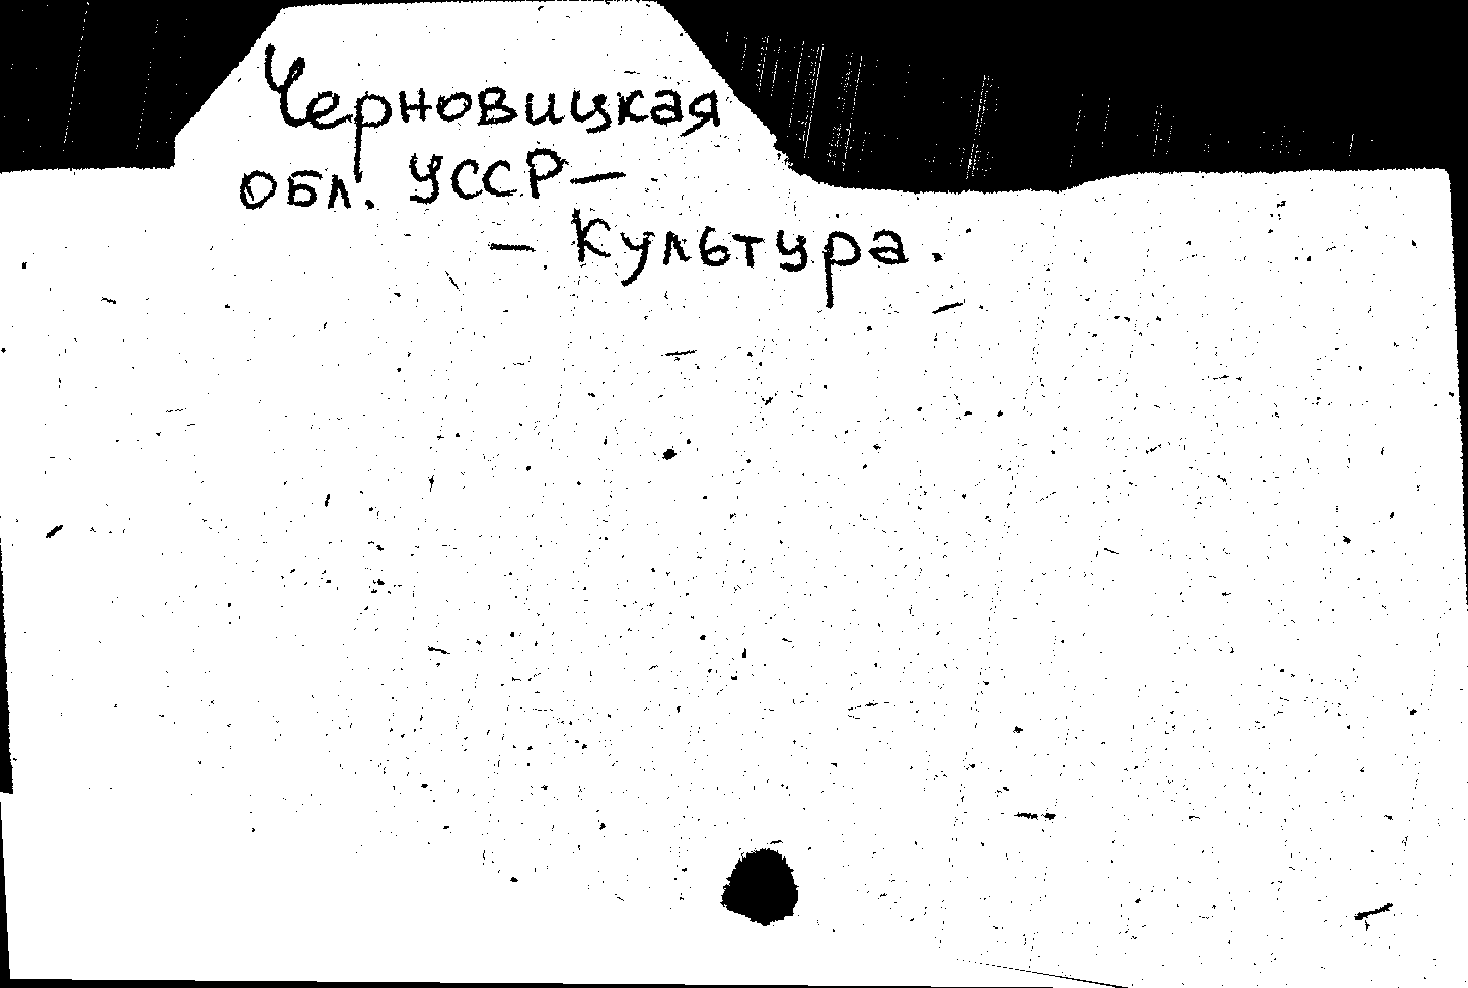 Черновицкая
обл. УССР —
— Культура.